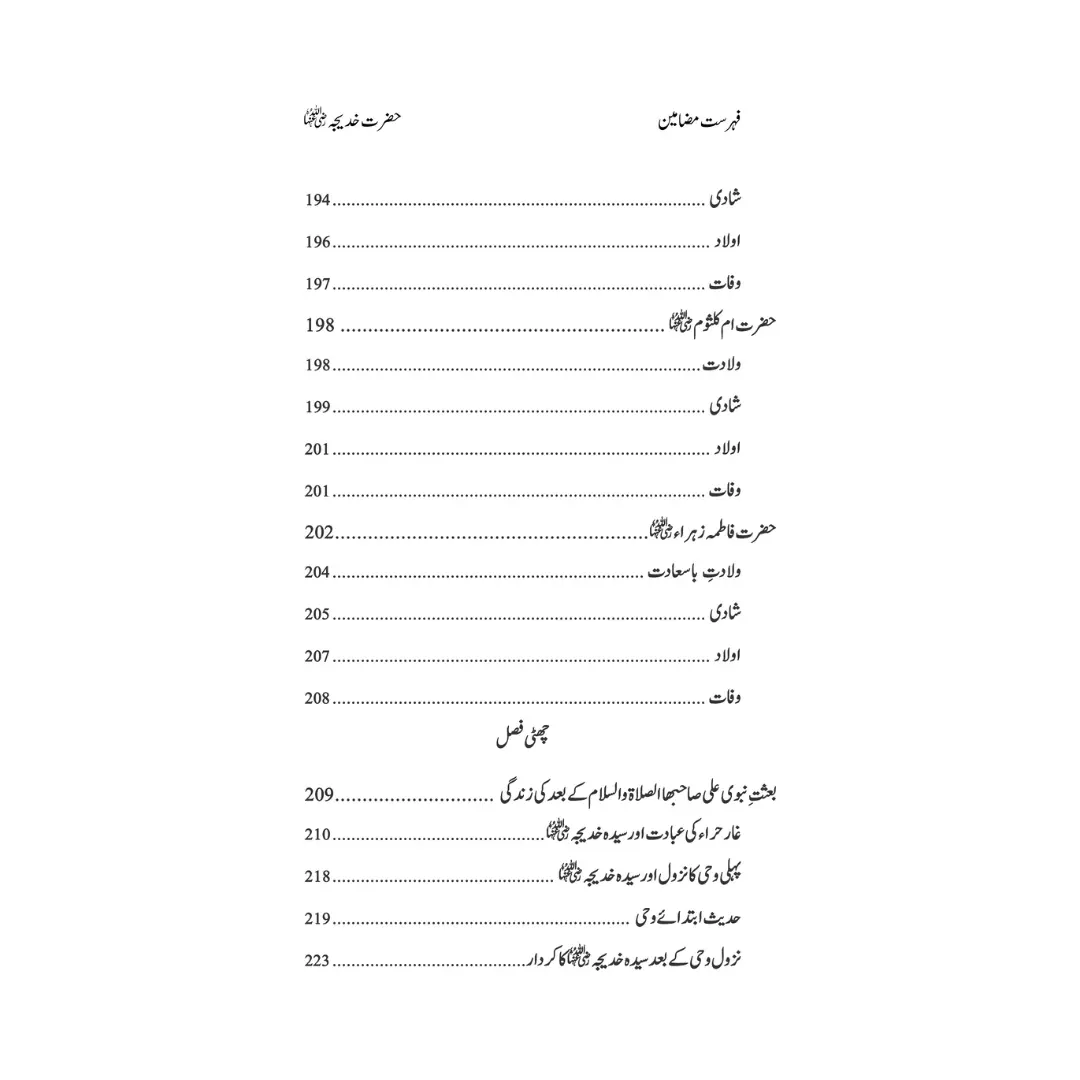 فہرست مضامین حضرت خدیجہ رضی اللہ عنہا
شادی ........................................ 194
اولاد ........................................ 196
وفات ........................................ 197
حضرت ام کلثوم رضی اللہ عنہا ........................................ 198
ولادت ........................................ 198
شادی ........................................ 199
اولاد ........................................ 201
وفات ........................................ 201
حضرت فاطمہ زہراء رضی اللہ عنہا ........................................ 202
ولادتِ باسعادت ........................................ 204
شادی ........................................ 205
اولاد ........................................ 207
وفات ........................................ 208
چھٹی فصل
بعثتِ نبوی علی صاحبھا الصلاۃ والسلام کے بعد کی زندگی ........................................ 209
غار حراء کی عبادت اور سیدہ خدیجہ رضی اللہ عنہا ........................................ 210
پہلی وحی کا نزول اور سیدہ خدیجہ رضی اللہ عنہا ........................................ 218
حدیث ابتدائے وحی ........................................ 219
نزول وحی کے بعد سیدہ خدیجہ رضی اللہ عنہا کا کردار ........................................ 223